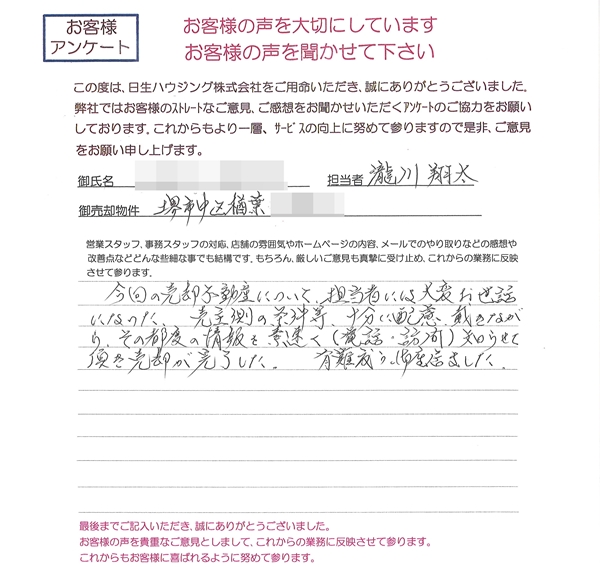 お客様
アンケート
お客様の声を大切にしています
お客様の声を聞かせて下さい
この度は、日生ハウジング株式会社をご用命いただき、誠にありがとうございました。
弊社ではお客様のストレートなご意見、ご感想をお聞かせいただくアンケートのご協力をお願い
しております。これからもより一層、サービスの向上に努めて参りますので是非、ご意見
をお願い申し上げます。
御氏名 担当者 瀧川 翔太
御売却物件 堺市中区楢葉
営業スタッフ、事務スタッフの対応、店舗の雰囲気やホームページの内容、メールでのやり取りなどの感想や
改善点などどんな些細な事でも結構です。もちろん、厳しいご意見も真摯に受け止め、これからの業務に反映
させて参ります。
今回の売却不動産について、担当者には大変お世話
になった、売主側の条件等、十分に配慮、戴きなが
ら、その都度の情報を素速く(電話・訪問)知らせて
頂き売却が完了した。 有難う御座居ました。
最後までご記入いただき、誠にありがとうございました。
お客様の声を貴重なご意見としまして、これからの業務に反映させて参ります。
これからもお客様に喜ばれるように努めて参ります。